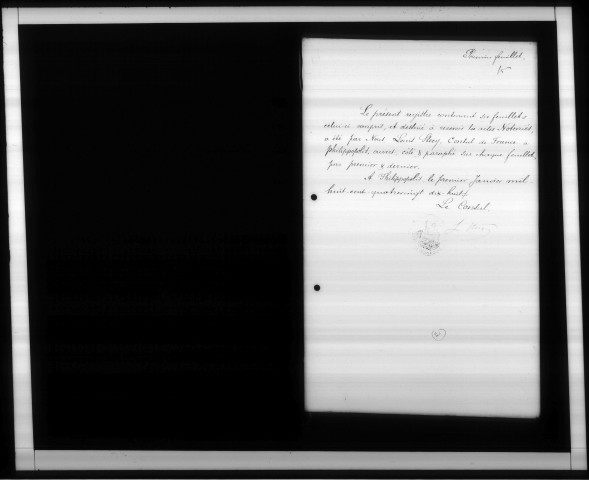 Premier feuillet.
Le présent registre contenant dix feuillets
celui-ci compris, et destiné à recevoir les actes Notariés,
a été par Nous Louis Steeg, Consul de France à
Philippopoli, ouvert, coté & paraphé sur chaque feuillet,
par premier & dernier.
A Philippopoli, le premier Janvier mil
huit cent quatrevingt dix huit.
Le Consul,